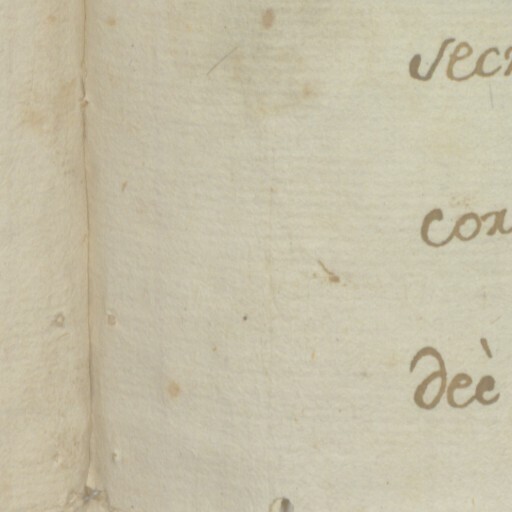 secr
con
deè